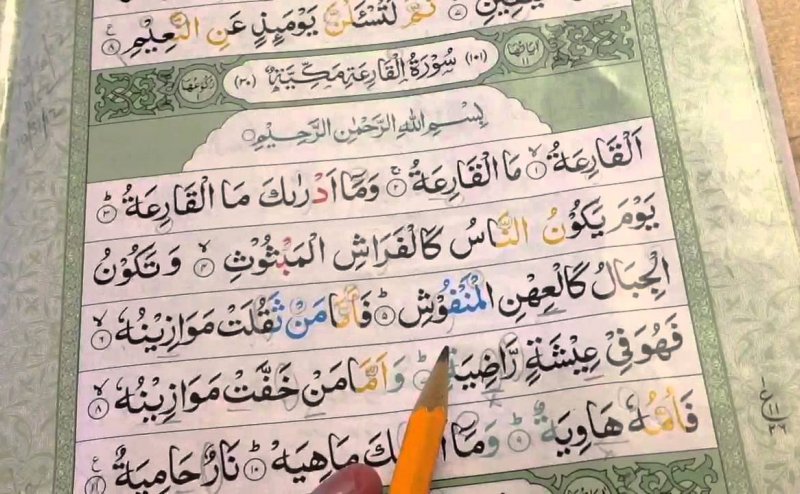 ثُمَّ لَتُسْـَٔلُنَّ يَوْمَىِٕذٍ عَنِ النَّعِيْمِ ۝۸
(۱۰۱) سُوْرَةُ الْقَارِعَةِ مَكِّيَّةٌ (۳۰)
بِسْمِ اللّٰهِ الرَّحْمٰنِ الرَّحِيْمِ
اَلْقَارِعَةُ ۝۱ مَا الْقَارِعَةُ ۝۲ وَمَاۤ اَدْرٰىكَ مَا الْقَارِعَةُ ۝۳
يَوْمَ يَكُوْنُ النَّاسُ كَالْفَرَاشِ الْمَبْثُوْثِ ۝۴ وَتَكُوْنُ
الْجِبَالُ كَالْعِهْنِ الْمَنْفُوْشِ ۝۵ فَاَمَّا مَنْ ثَقُلَتْ مَوَازِيْنُهٗ ۝۶
فَهُوَ فِيْ عِيْشَةٍ رَّاضِيَةٍ وَاَمَّا مَنْ خَفَّتْ مَوَازِيْنُهٗ ۝۸
فَاُمُّهٗ هَاوِيَةٌ ۝۹ وَمَاۤ مَاهِيَهْ ۝۱۰ نَارٌ حَامِيَةٌ ۝۱۱